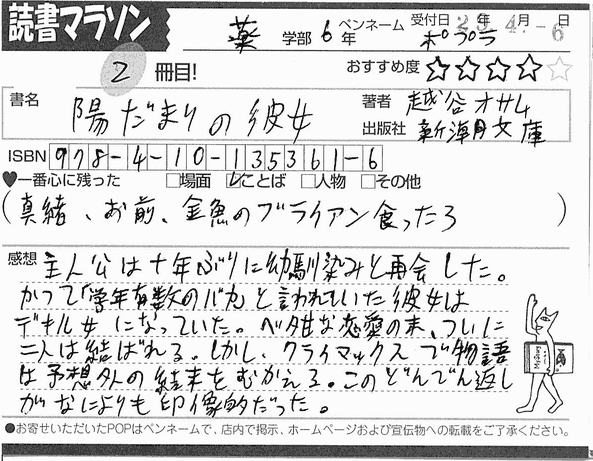 読書マラソン
薬 学部 6 年 ペンネーム ポプラ 受付日 23年 4月 -6日
2 冊目! おすすめ度 ☆☆☆☆☆
書名 陽だまりの彼女 著者 越谷オサム
出版社 新潮文庫
ISBN 978-4-10-135361-6
♥一番心に残った □場面 ☑ことば □人物 □その他
(真緒、お前、金魚のブライアン食ったろ)
感想 主人公は十年ぶりに幼馴染みと再会した。
かつて「学年有数のバカ」と言われていた彼女は
デキル女になっていた。ベタ甘な恋愛の末、ついに
二人は結ばれる。しかし、クライマックスで物語
は予想外の結末をむかえる。このどんでん返し
がなによりも印像的だった。
●お寄せいただいたPOPはペンネームで、店内で掲示、ホームページおよび宣伝物への転載をご了承ください。